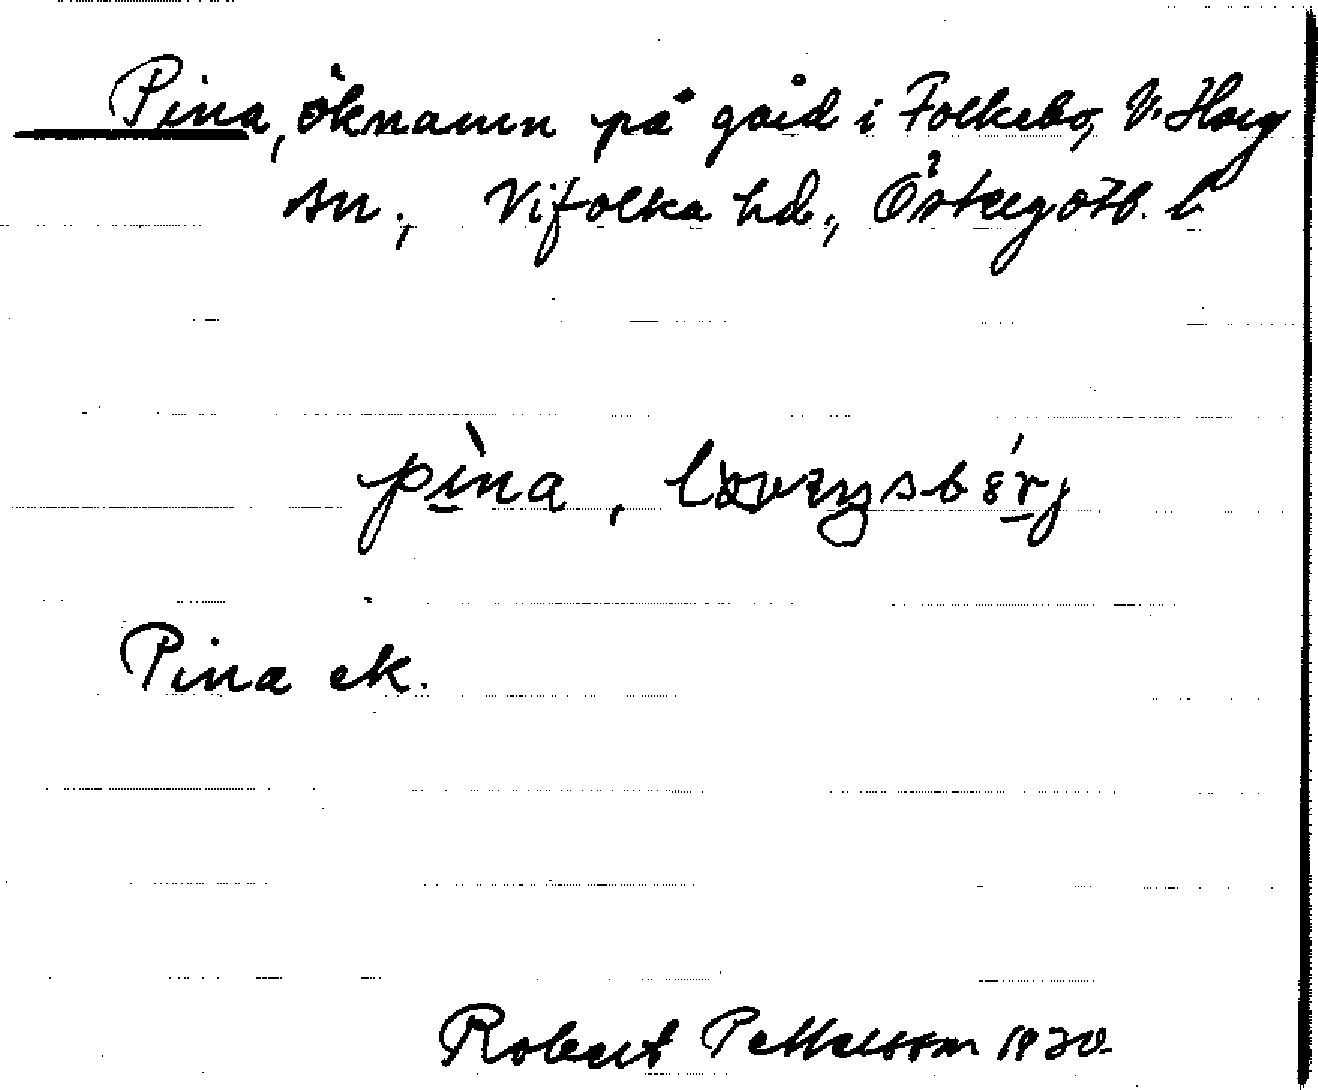 Pina, öknamn på gård i Folkebo, V. Harg
sn., Vifolka hd., Östergötl. l
pìna,
Pina ek.
Robert Pettersson 1930